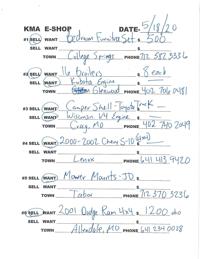 KMA E-SHOP DATE- 5/18/20
#1 SELL WANT Bedroom Furniture Set $ 500
SELL WANT $
TOWN College Springs PHONE 712 582 3336
#2 SELL WANT 16 Broilers $ 8 each
SELL WANT Kubota Engine $
TOWN Glenwood PHONE 402 706 0481
#3 SELL WANT Camper Shell-Toyota Truck $
SELL WANT Wisconsin V4 Engine $
TOWN Craig, MO PHONE 402 740 2049
#4 SELL WANT 2000-2002 Chevy S-10 $
SELL WANT $
TOWN Lenox PHONE 641 413 9420
#5 SELL WANT Mower Mounts-JD $
SELL WANT $
TOWN Tabor PHONE 712 370 3236
#6 SELL WANT 2001 Dodge Ram 4x4 $ 1200 obo
SELL WANT $
TOWN Allendale, MO PHONE 641 234 0028